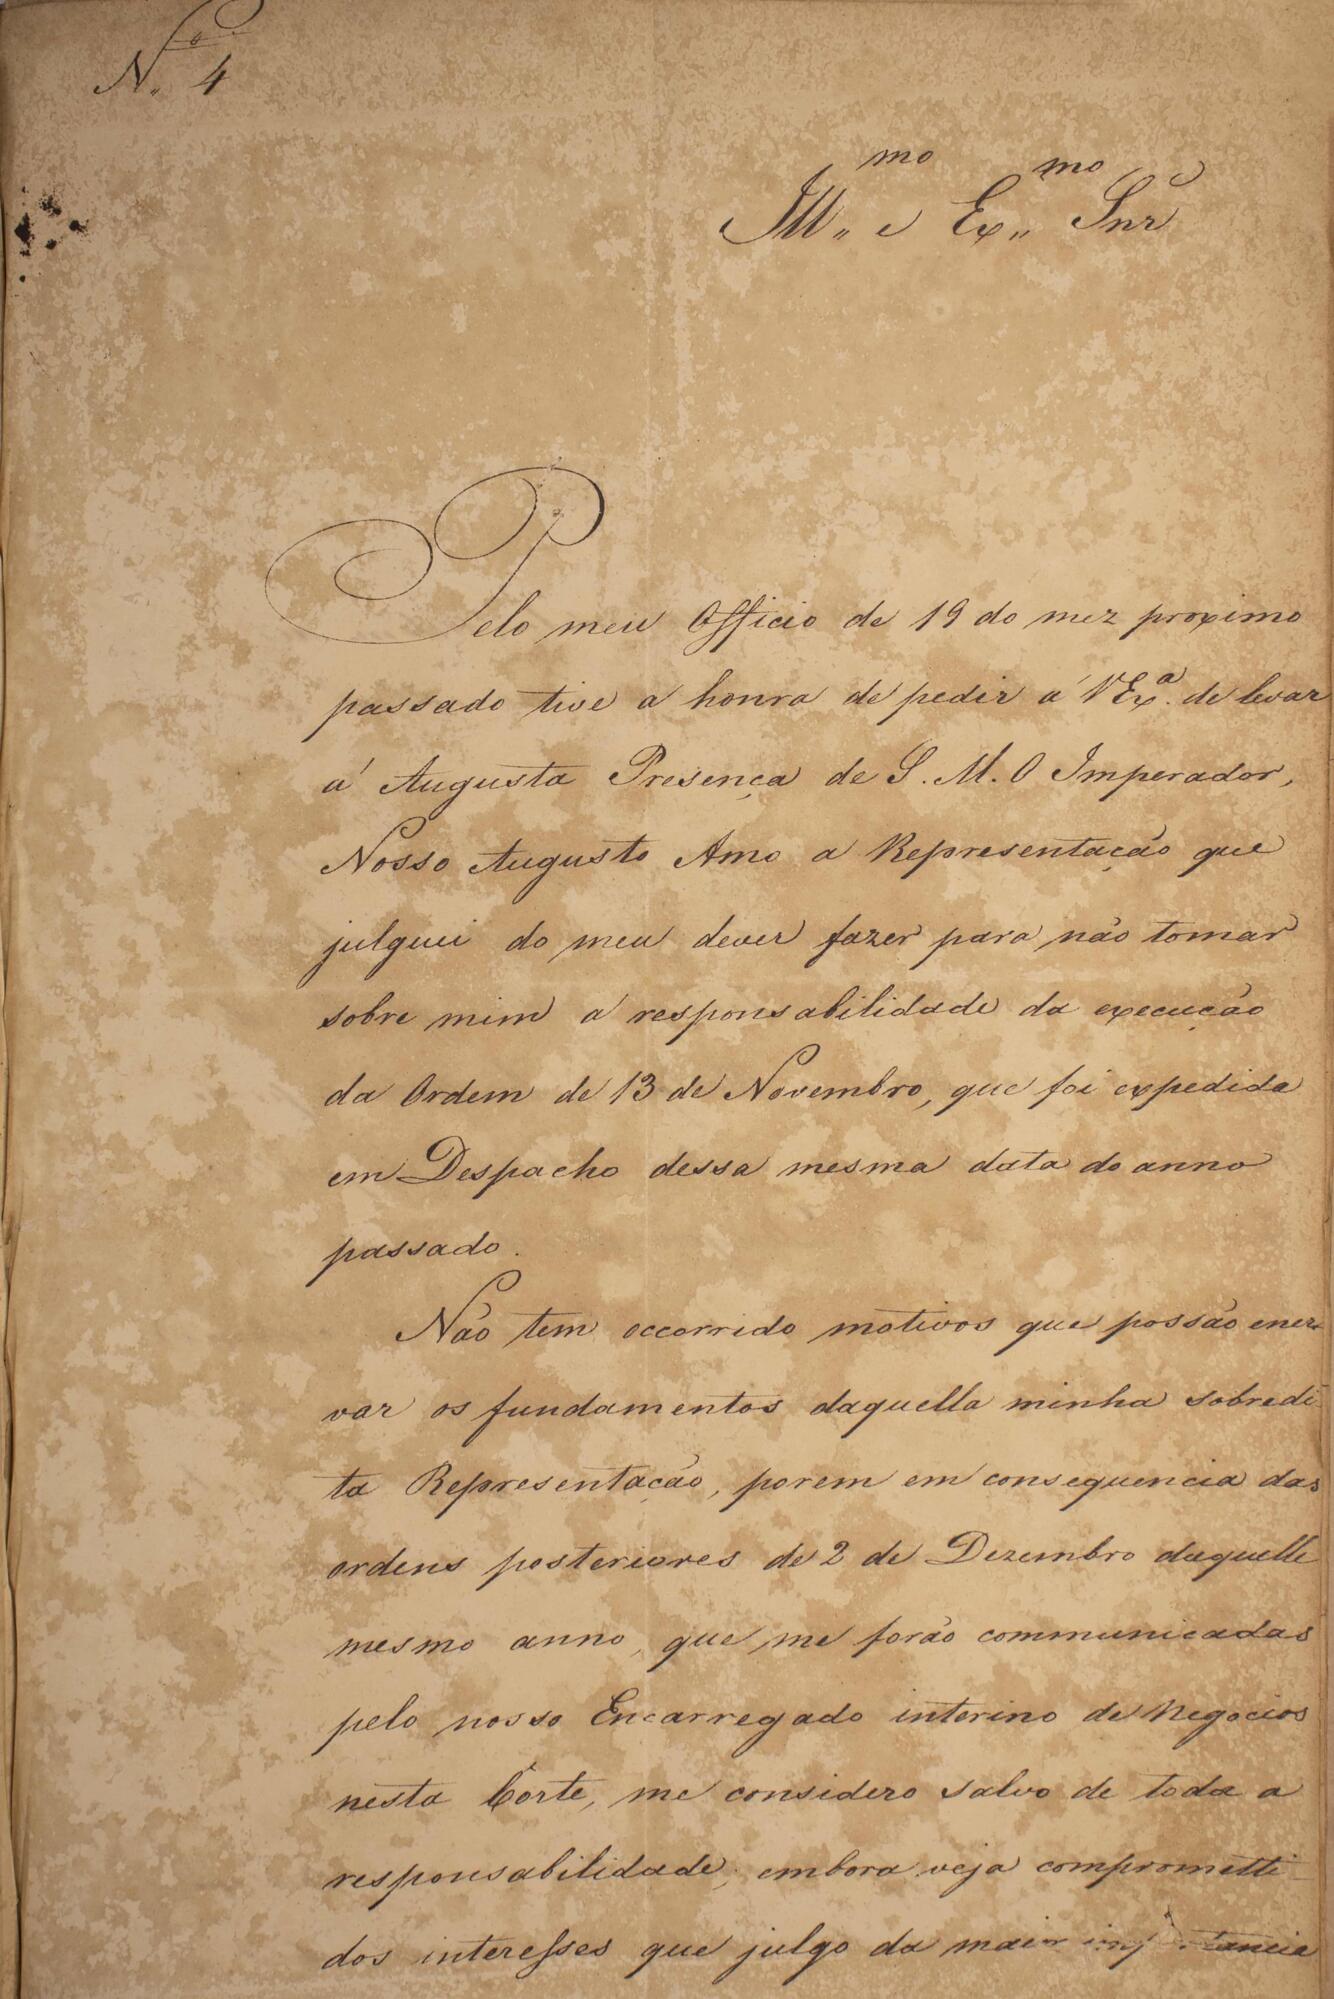 N.º 4
Ill.mo e Ex.mo Snr
Pelo meu Officio de 19 do mez proximo
passado tive a honra de pedir a VEx.ª de levar
á Augusta Presença de S. M. O Imperador,
Nosso Augusto Amo a Representação que
julguei do meu dever fazer para não tomar
sobre mim a responsabilidade da execução
da Ordem de 13 de Novembro, que foi expedida
em Despacho dessa mesma data do anno
passado.
Não tem occorrido motivos que possão ener-
var os fundamentos daquella minha sobredi-
ta Representação, porem em consequencia das
ordens posteriores de 2 de Dezembro daquelle
mesmo anno, que me forão communicadas
pelo nosso Encarregado interino de Negocios
nesta Corte, me considero salvo de toda a
responsabilidade, embora veja compromETti-
dos interesses que julgo da maior importancia